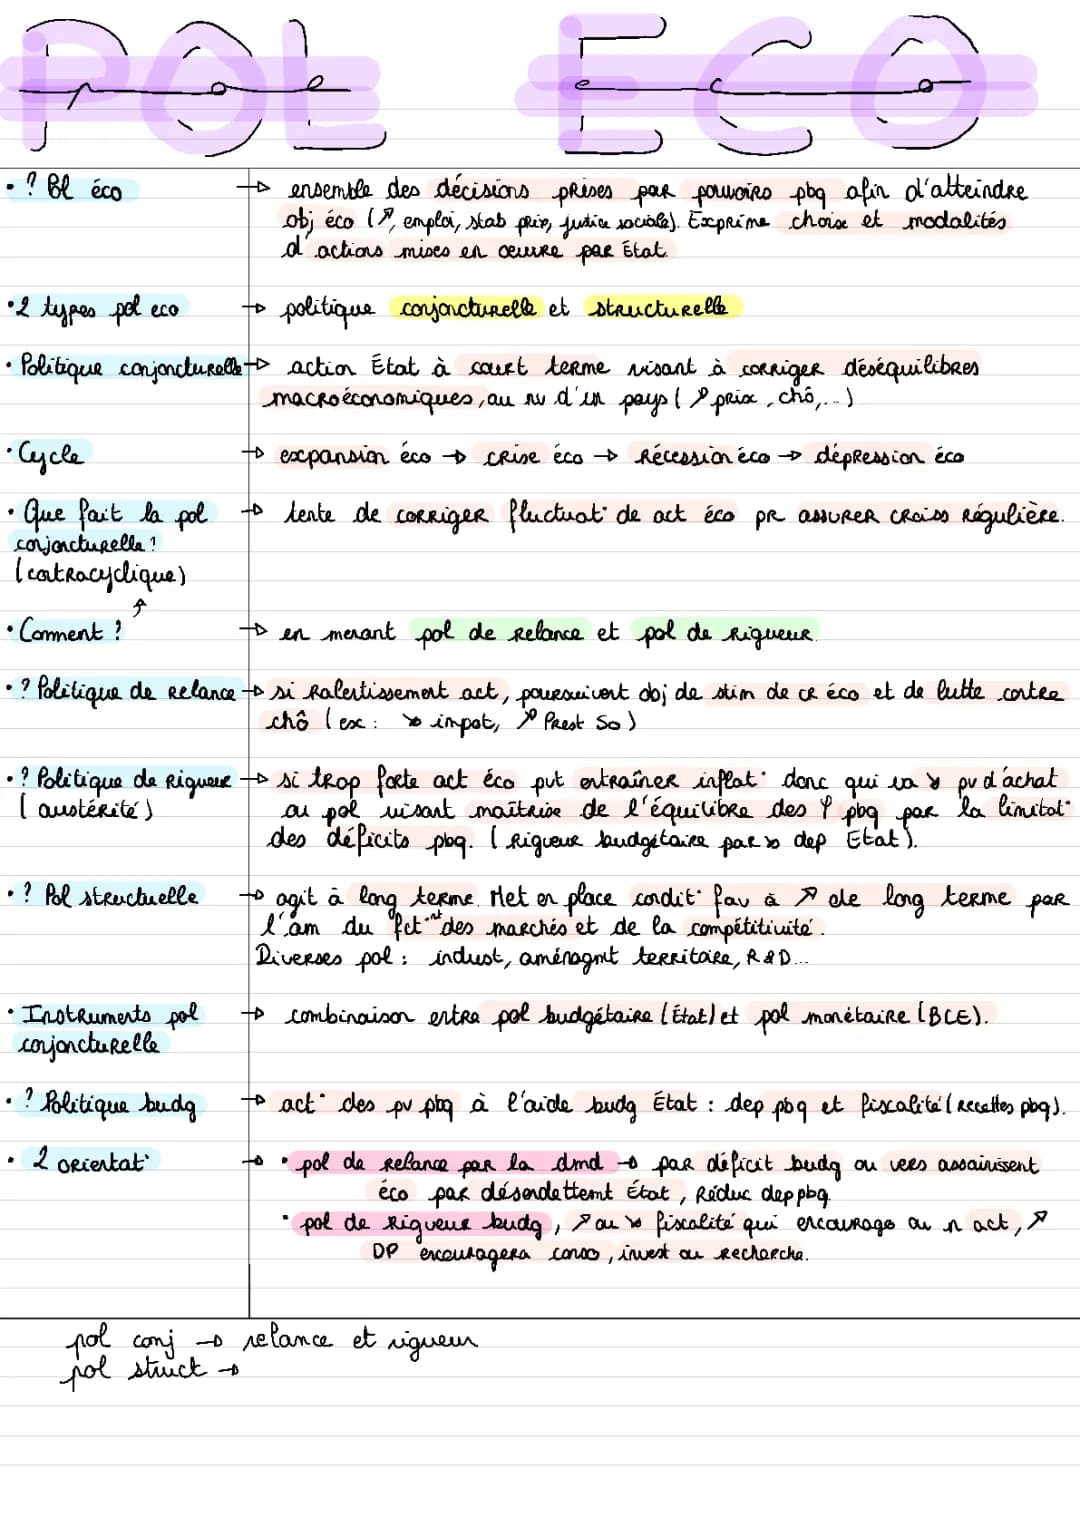 POL ECO
• ? Pol éco → ensemble des décisions prises par pouvoirs pbq afin d'atteindre
obj éco (↗, emploi, stab prix, justice sociale). Exprime choix et modalités
d'actions mises en oeuvre par État.
• 2 types pol eco → politique conjoncturelle et structurelle
• Politique conjoncturelle → action État à court terme visant à corriger déséquilibres
macroéconomiques, au nv d'un pays (↗ prix, chô,...)
• Cycle → expansion éco → crise éco → Récession éco → dépression éco
• Que fait la pol → tente de corriger fluctuat° de act éco pr assurer croiss régulière.
conjoncturelle ?
(contracyclique)
↗
• Comment ? → en menant pol de relance et pol de rigueur.
• ? Politique de relance → si ralentissement act, poursuivent obj de stim de cr éco et de lutte contre
chô (ex : ↘ impot, ↗ Prest So)
• ? Politique de rigueur → si trop forte act éco put entraîner inflat° donc qui va ↘ pv d'achat
(austérité) au pol visant maîtrise de l'équilibre des f pbq par la limitat°
des déficits pbq. (Rigueur budgétaire par ↘ dep État).
• ? Pol structuelle → agit à long terme. Met en place condit° fav à ↗ de long terme par
l'am du fct°nt des marchés et de la compétitivité.
Diverses pol : indust, aménagnt territoire, R&D...
• Instruments pol → combinaison entre pol budgétaire (État) et pol monétaire (BCE).
conjoncturelle
• ? Politique budg → act° des pv pbq à l'aide budg État : dep pbq et fiscalité (recettes pbq).
• 2 orientat° → • pol de relance par la dmd → par déficit budg ou vers assainissent
éco par désendettemt État, Réduc dep pbq.
• pol de rigueur budg, ↗ ou ↘ fiscalité qui encourage ou n act, ↗
DP encouragera conso, invest ou recherche.
pol conj → relance et rigueur
pol struct →